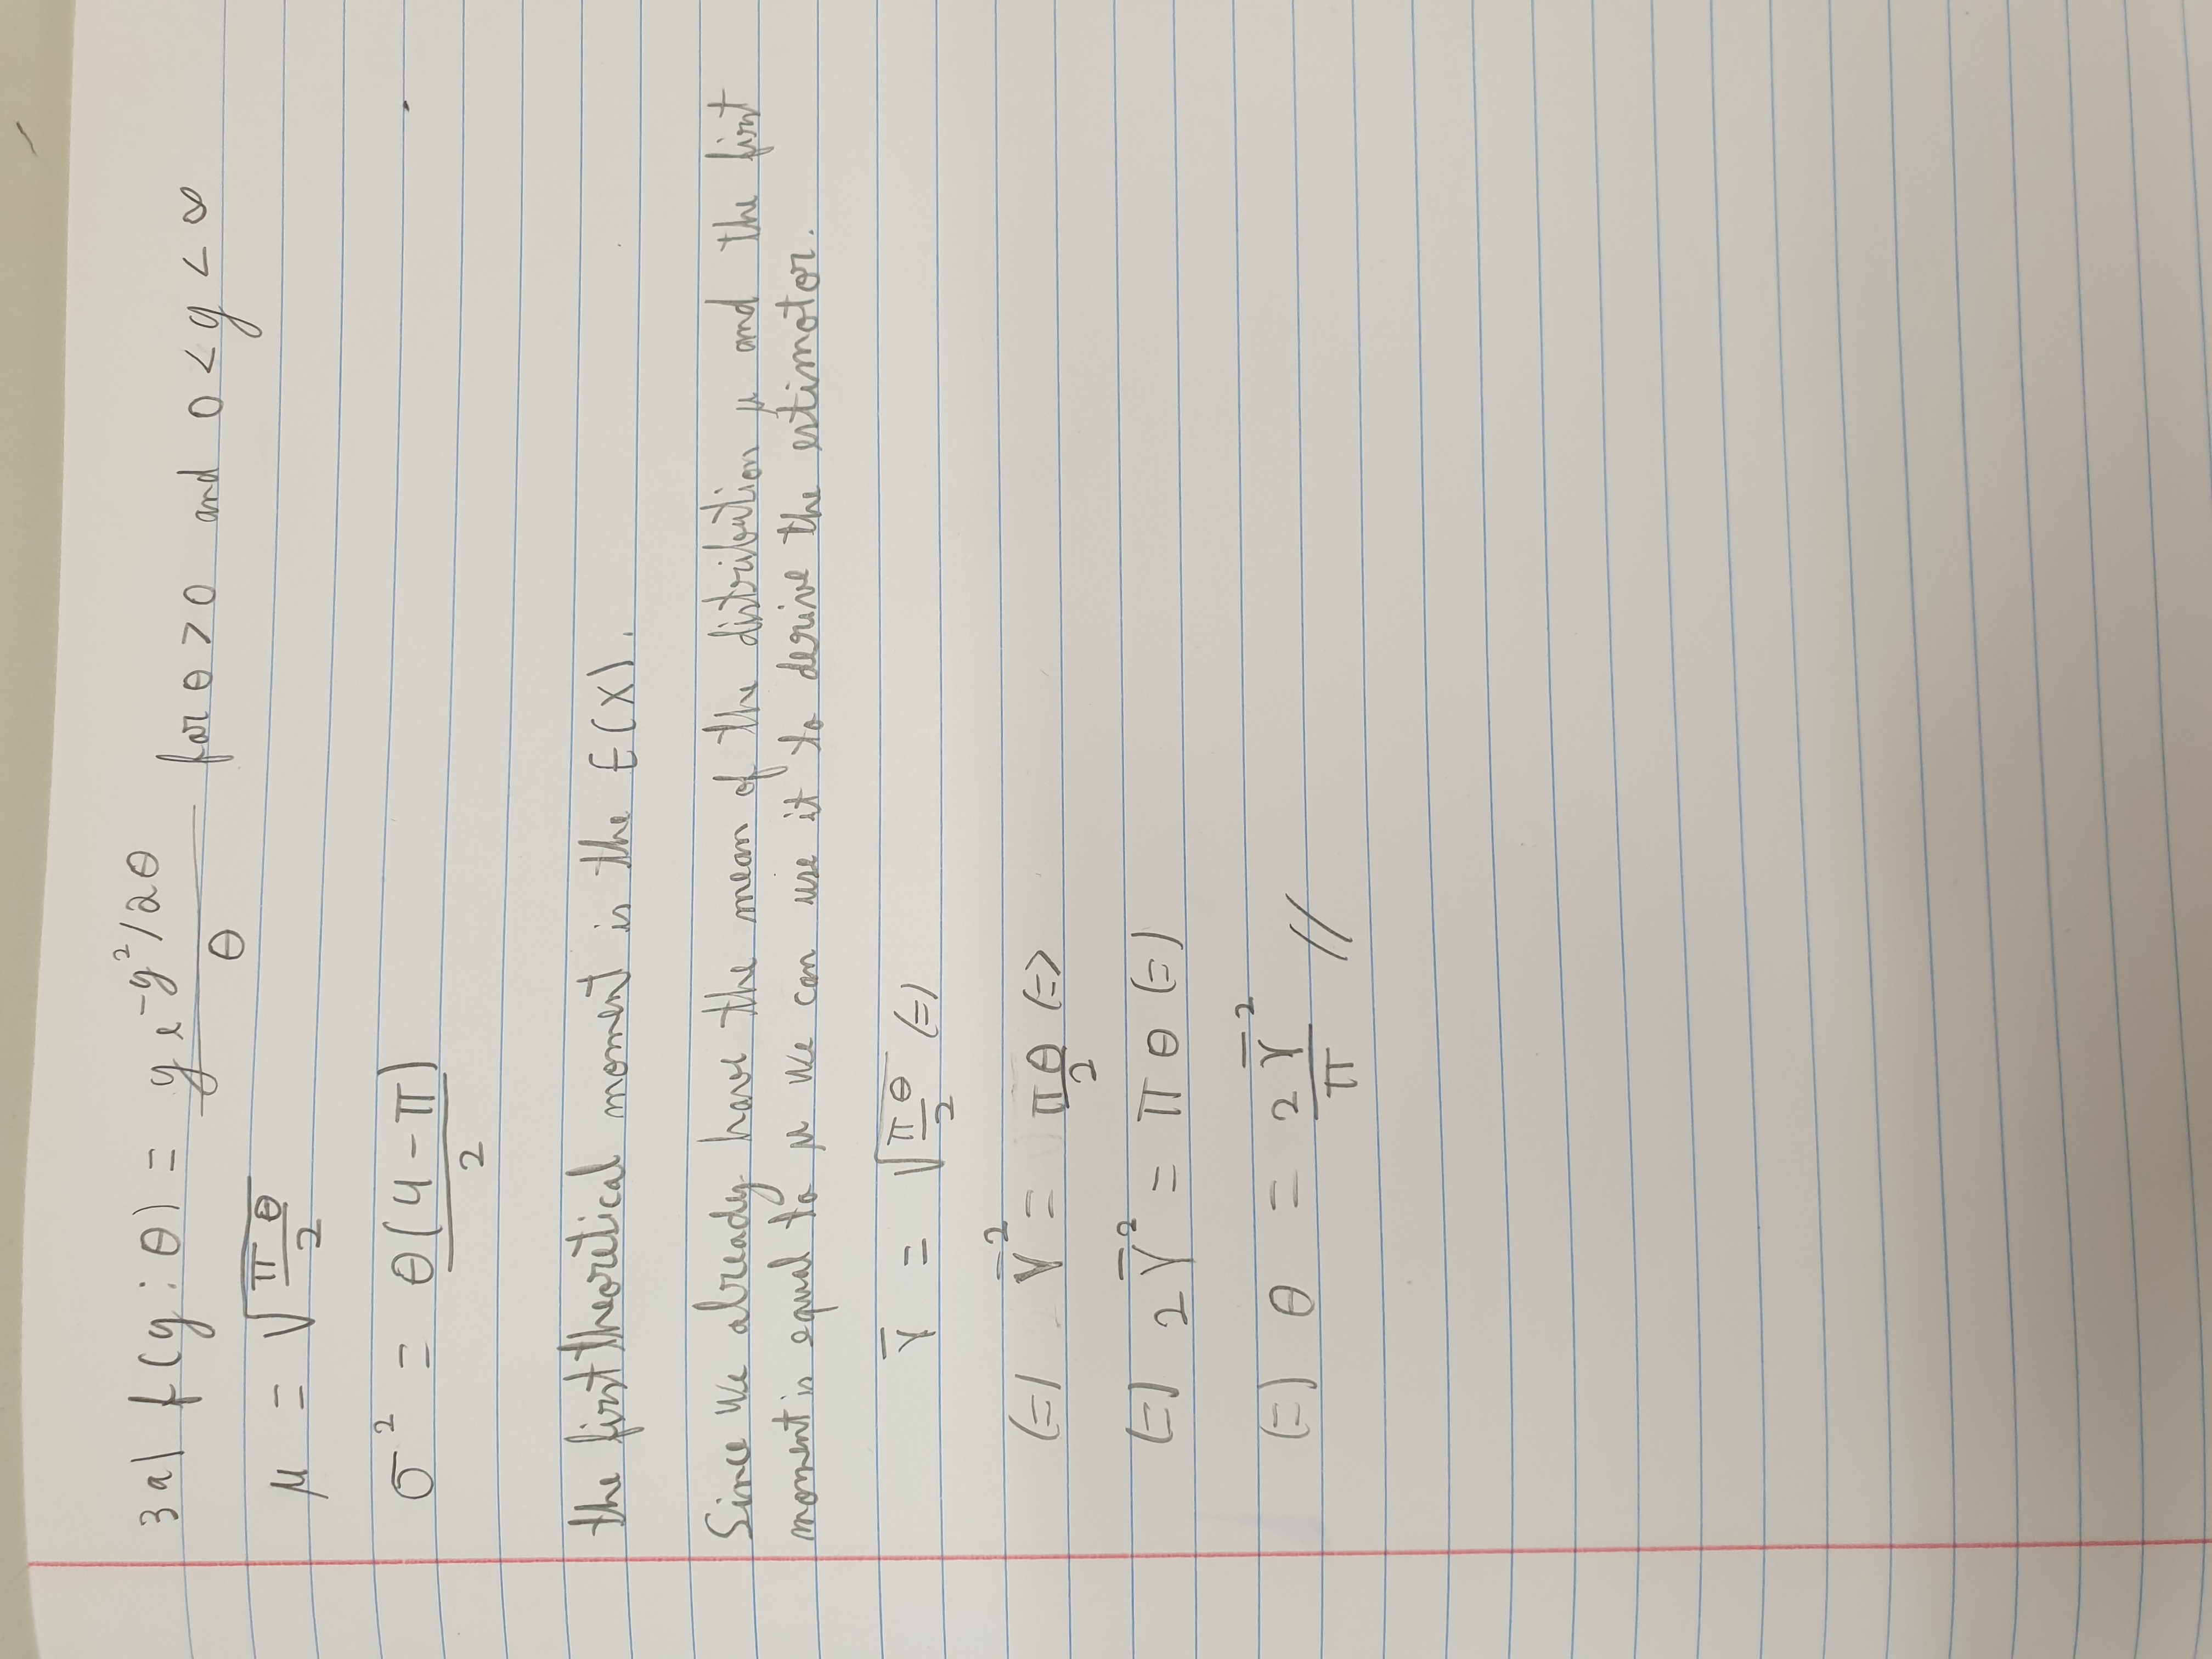 3a) f(y; θ) = y e^{-y²/2θ} / θ for θ > 0 and 0 < y < ∞
μ = √(πθ/2)
σ² = θ(4-π)/2
the first theoretical moment is the E(X).
Since we already have the mean of the distribution μ and the first
moment is equal to μ we can use it to derive the estimator.
Ȳ = √(πθ/2) (=)
(=) Ȳ² = πθ/2 (=)
(=) 2Ȳ² = πθ (=)
(=) θ = 2Ȳ²/π //